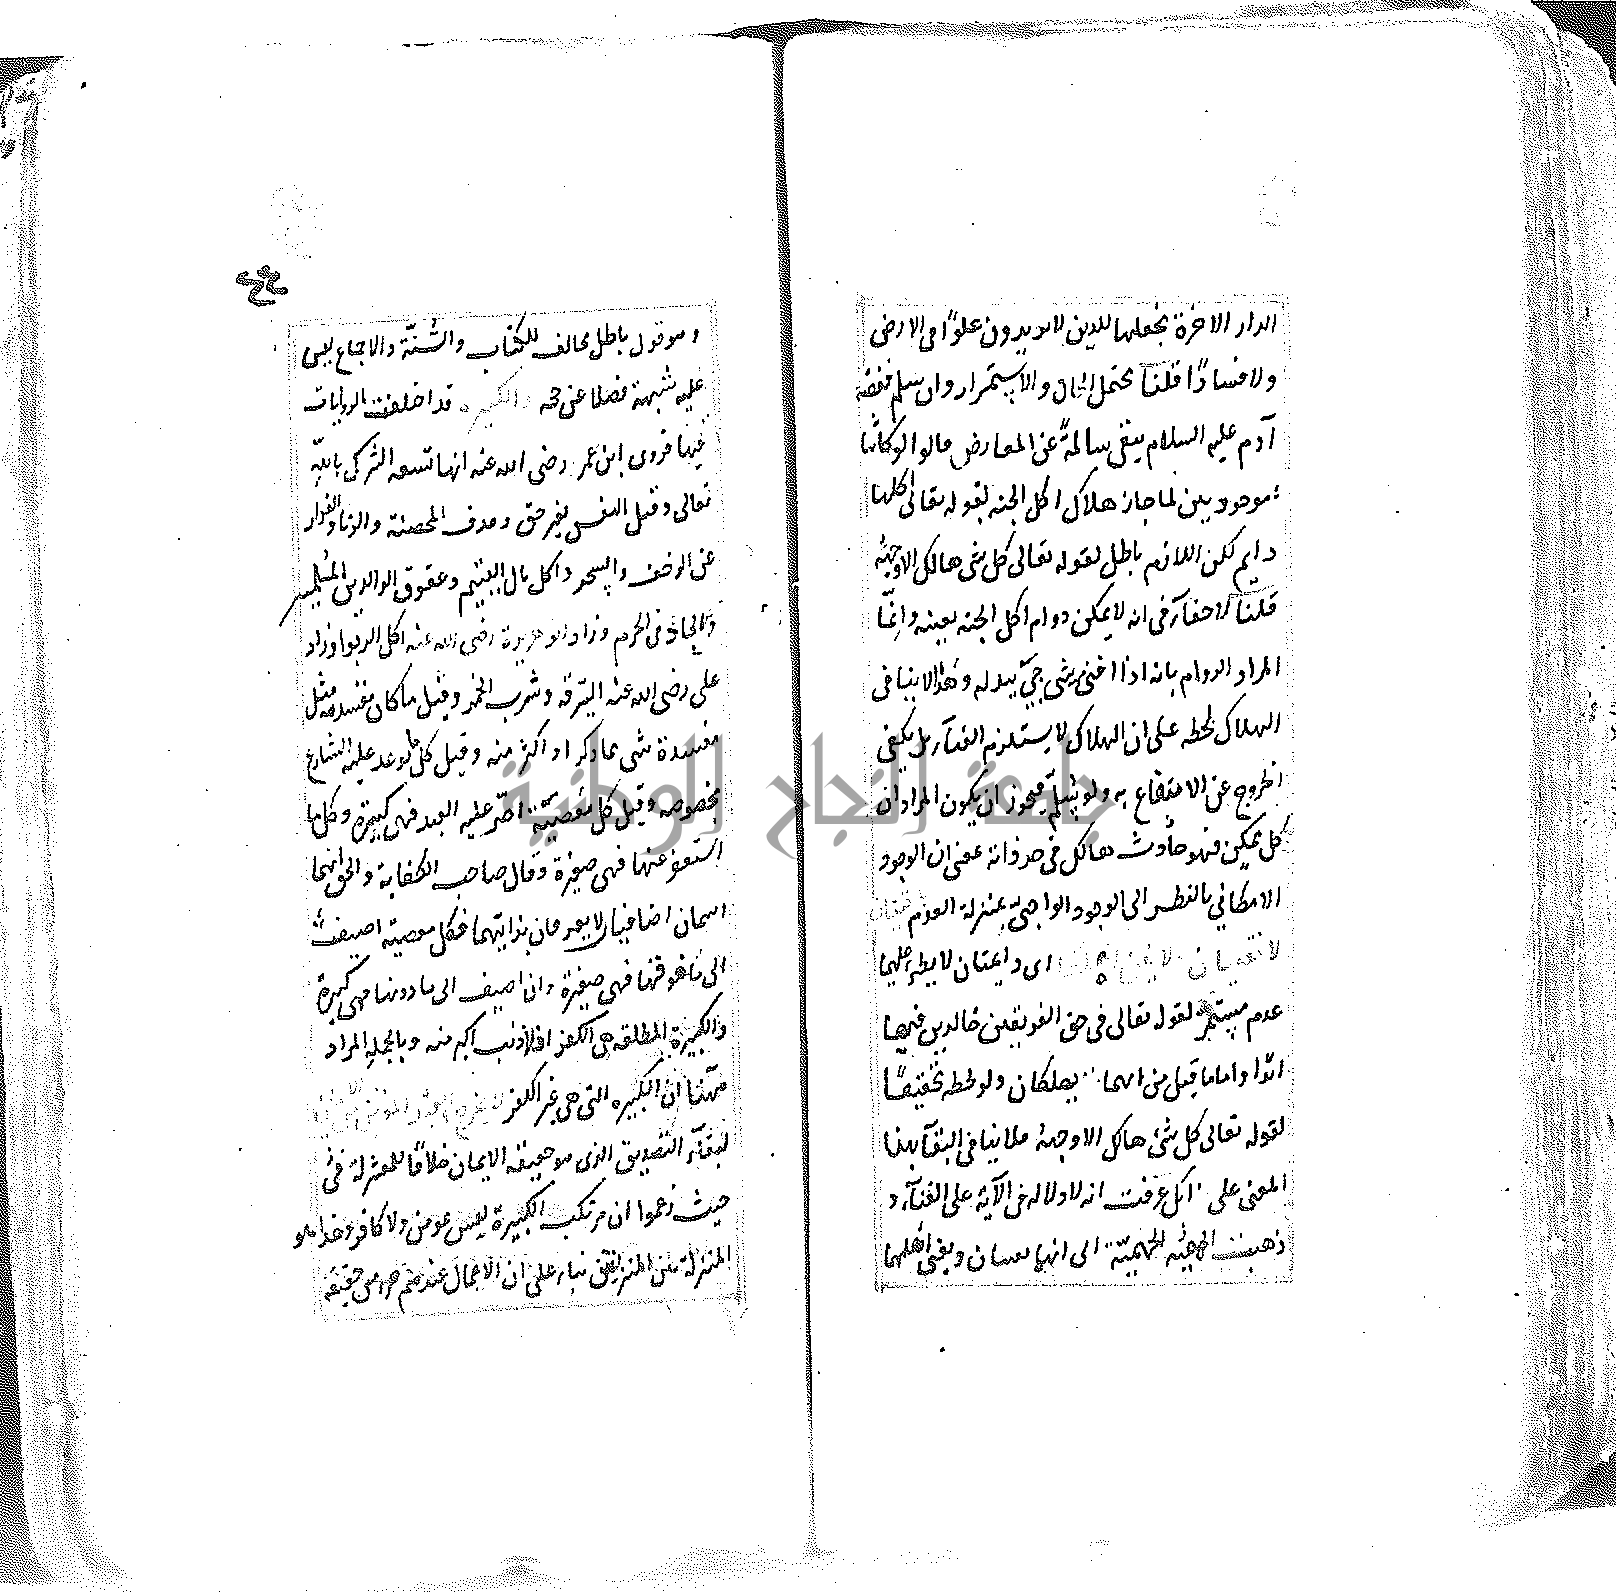 الدار الاخرة نجعلها للذين لا يريدون علوًّا فى الارض
ولا فسادًا قلنا يحتمل الحال والاستمرار وان سلم فقصة
آدم عليه السلام يبقى سالمة عن المعارض قالوا لو كانتا
موجودتين لما جاز هلاك اكل الجنه لقوله تعالى اكلها
دايم لكن اللازم باطل لقوله تعالى كل شئ هالك الا وجهه
قلنا لا خفآء فى انه لا يمكن دوام اكل الجنه بعينه وانّما
المراد الدوام بانه اذا افنى منه شئ جئ ببدله وهذا لا ينافى
الهلاك لحظه على ان الهلاك لا يستلزم الفنآء بل يكفى
الخروج عن الانتفاع به ولو سلّم فيجوز ان يكون المراد ان
كل ممكن فهو حادث هالك فى حد ذاته بمعنى ان الوجود
الامكانى بالنظر الى الوجود الواجبى بمنزلة العدم
لا تفنيان اى دايمتان لا يطرء عليهما
عدم مستمر لقوله تعالى فى حق الفريقين خالدين فيها
ابدًا واما ما قيل من انهما يهلكان ولو لحظه تحقيقًا
لقوله تعالى كل شئ هالك الا وجهه فلا ينافى البقآء بهذا
المعنى على انك عرفت انه لا دلاله فى الآية على الفنآء و
ذهبت الجهميّة الى انهما يفنيان ويفنى اهلهما
وهو قول باطل مخالف للكتاب والسُّنّة والاجماع ليس
عليه شبهة فضلا عن حجة والكبيره قد اختلفت الروايات
فيها فروى ابن عمر رضى الله عنه انها تسعه الشرك بالله
تعالى وقتل النفس بغير حق وقذف المحصنة والزنا والفرار
عن الزحف والسحر واكل مال اليتيم وعقوق الوالدين المسلمين
والالحاد فى الحرم وزاد ابو هريرة رضى الله عنه اكل الربوا وزاد
على رضى الله عنه السرقه وشرب الخمر وقيل ما كان مفسدته مثل
مفسدة شى مما ذكر او اكثر منه وقيل كل ما توعد عليه الشارع
بخصوصه وقيل كل معصيّة اصرّ عليه العبد فهى كبيرة وكل ما
استغفر عنها فهى صغيرة وقال صاحب الكفاية والحق انهما
اسمان اضافيان لا يعرفان بذاتيهما فكل معصية اضيفت
الى ما فوقها فهى صغيرة وان اضيف الى ما دونها فهى كبيرة
والكبيرة المطلقه هى الكفر اذ لا ذنب اكبر منه وبالجمله المراد
هٰهنا ان الكبيره التى هى غير الكفر لا تخرج العبد المؤمن من الايمان
لبقآء التصديق الذى هو حقيقه الايمان خلافًا للمعتزلة
حيث زعموا ان مرتكب الكبيرة ليس بمؤمن ولا كافر وهذا هو
المنزلة بين المنزلتين بنآء على ان الاعمال عندهم جزء من حقيقه